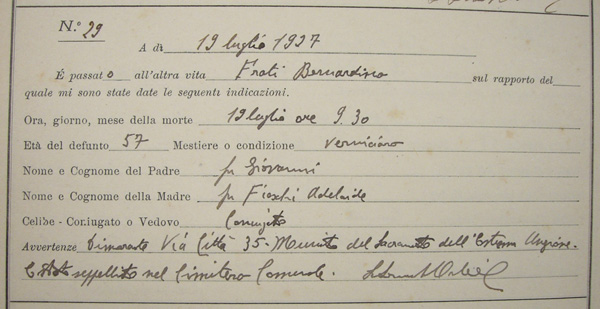 N.º 29
A dì 19 luglio 1937
È passato all'altra vita Frati Bernardino sul rapporto del
quale mi sono state date le seguenti indicazioni.
Ora, giorno, mese della morte 19 luglio ore 9.30
Età del defunto 57 Mestiere o condizione verniciaro
Nome e Cognome del Padre fu Giovanni
Nome e Cognome della Madre fu Fieschi Adelaide
Celibe - Coniugato o Vedovo Coniugato
Avvertenze Dimorante Via Città 35 - Munito del Sacramento dell'Estrema Unzione.
È stato seppellito nel Cimitero Comunale.